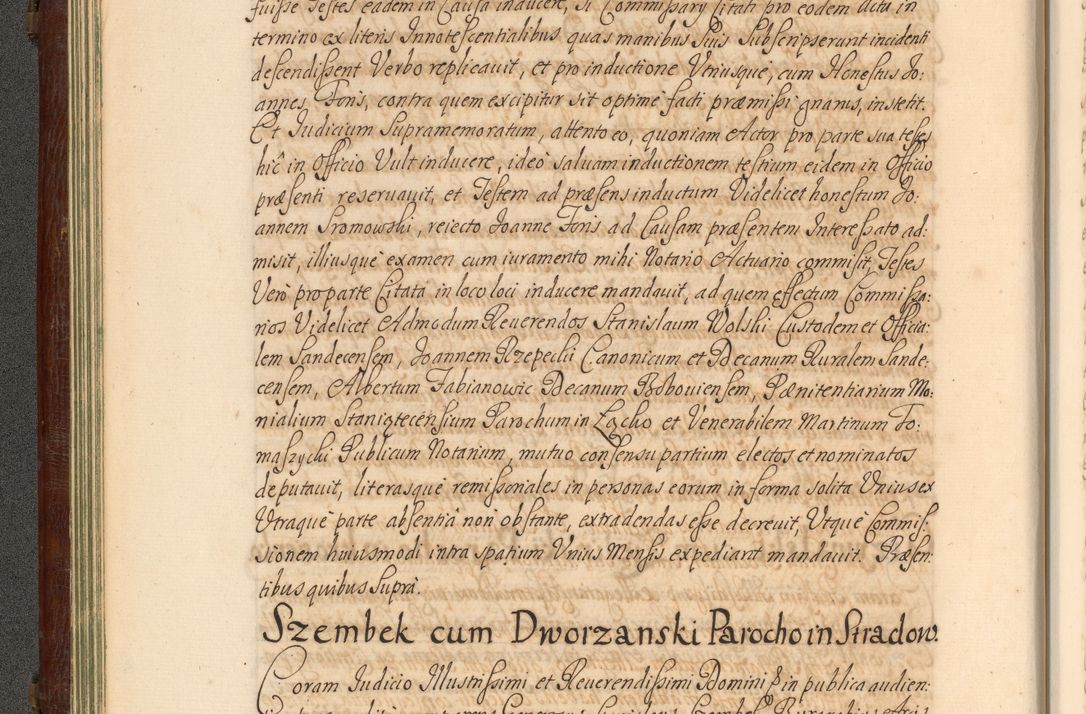 fuisse Testes eadem in Causa inducere, si Commissary Citati pro eodem Actu in
termino ex literis Innotescentialibus, quas manibus suis subscripserunt incidenti
descendissent Verbo replicauit, et pro inductione Vniusque, cum Honestus Jo:
annes Foris, contra quem excipitur sit optime facti præmissi gnarus, institit.
Et Judicium Supramemoratum, attento eo, quoniam Actor pro parte sua testes
hic in Officio Vult inducere, ideo saluam inductionem testium eidem in Officio
præsenti reseruauit, et Testem ad præsens inductum Videlicet honestum Jo:
annem Sromowski, reiecto Joanne Foris ad Causam præsentem Interessato ad:
misit, illiusque examen cum iuramento mihi Notario Actuario commisit, Testes
Vero pro parte Citata in loco loci inducere mandauit, ad quem effectum Commissa:
rios Videlicet Admodum Reuerendos Stanislaum Wolski Custodem et Officia:
lem Sandecensem, Joannem Rzepecki Canonicum et Decanum Ruralem Sande:
censem, Albertum Fabianowic Decanum Boboviensem, Pænitentiarium Mo:
nialium Staniątecensium Parochum in Łącko et Venerabilem Martinum To:
maszycki Publicum Notarium, mutuo consensu partium electos et nominatos
deputauit, literasque remissoriales in personas eorum in forma solita Vnius ex
Vtraque parte absentia non obstante, extradendas esse decreuit, Vtque Commis:
sionem huiusmodi intra spatium Vnius Mensis expediant mandauit. Præsen:
tibus quibus supra.
Szembek cum Dworzanski Parocho in Stradow.
Coram Judicio Illustrissimi et Reuerendissimi Domini in publica audien: